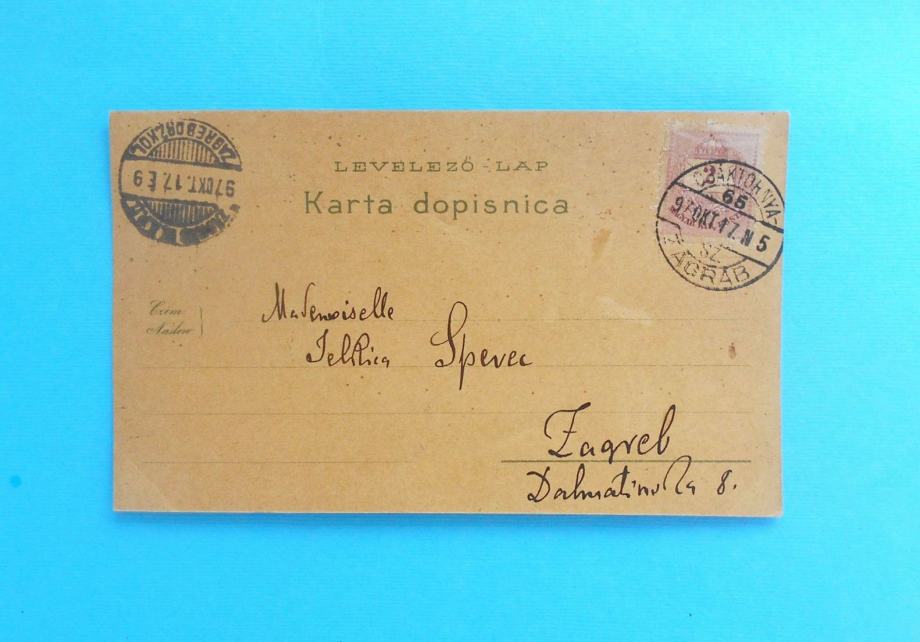 ZAGREB DRZ. KOL.
97 OKT. 17. É 9
LEVELEZŐ-LAP
Karta dopisnica
CSÁKTORNYA-
65
97 OKT. 17. N 5
SZ.
ZÁGRÁB
Czím
Naslov
Mademoiselle
Jelkica Spevec
Zagreb
Dalmatinska 8.